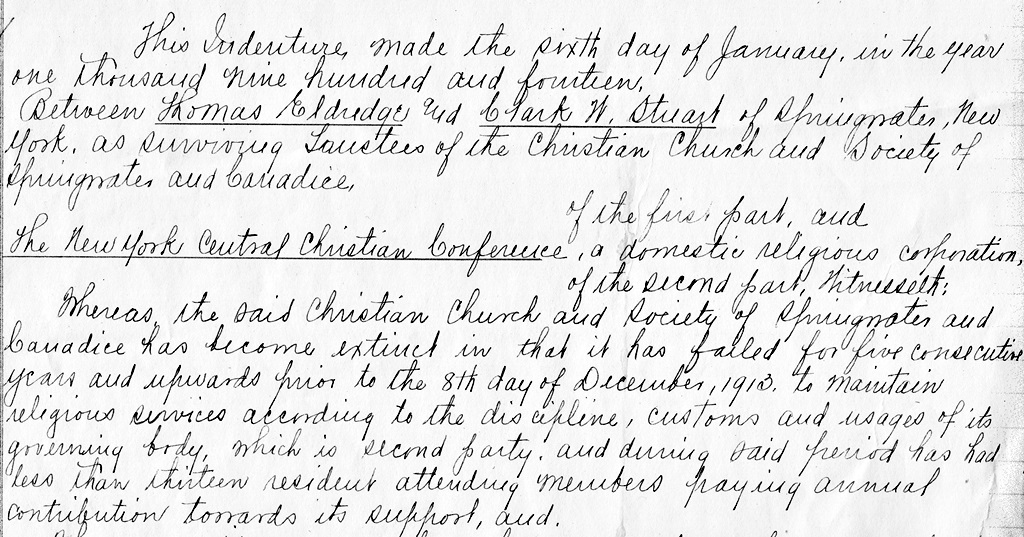 This Indenture, made the sixth day of January, in the year
one thousand nine hundred and fourteen,
Between Thomas Eldredge and Clark W. Stuart of Springwater, New
York, as surviving Trustees of the Christian Church and Society of
Springwater and Canadice,
of the first part, and
The New York Central Christian Conference, a domestic religious corporation,
of the second part, Witnesseth:
Whereas, the said Christian Church and Society of Springwater and
Canadice has become extinct in that it has failed for five consecutive
years and upwards prior to the 8th day of December, 1913. to maintain
religious services according to the discipline, customs and usages of its
governing body, which is second party, and during said period has had
less than thirteen resident attending members paying annual
contribution towards its support, and.